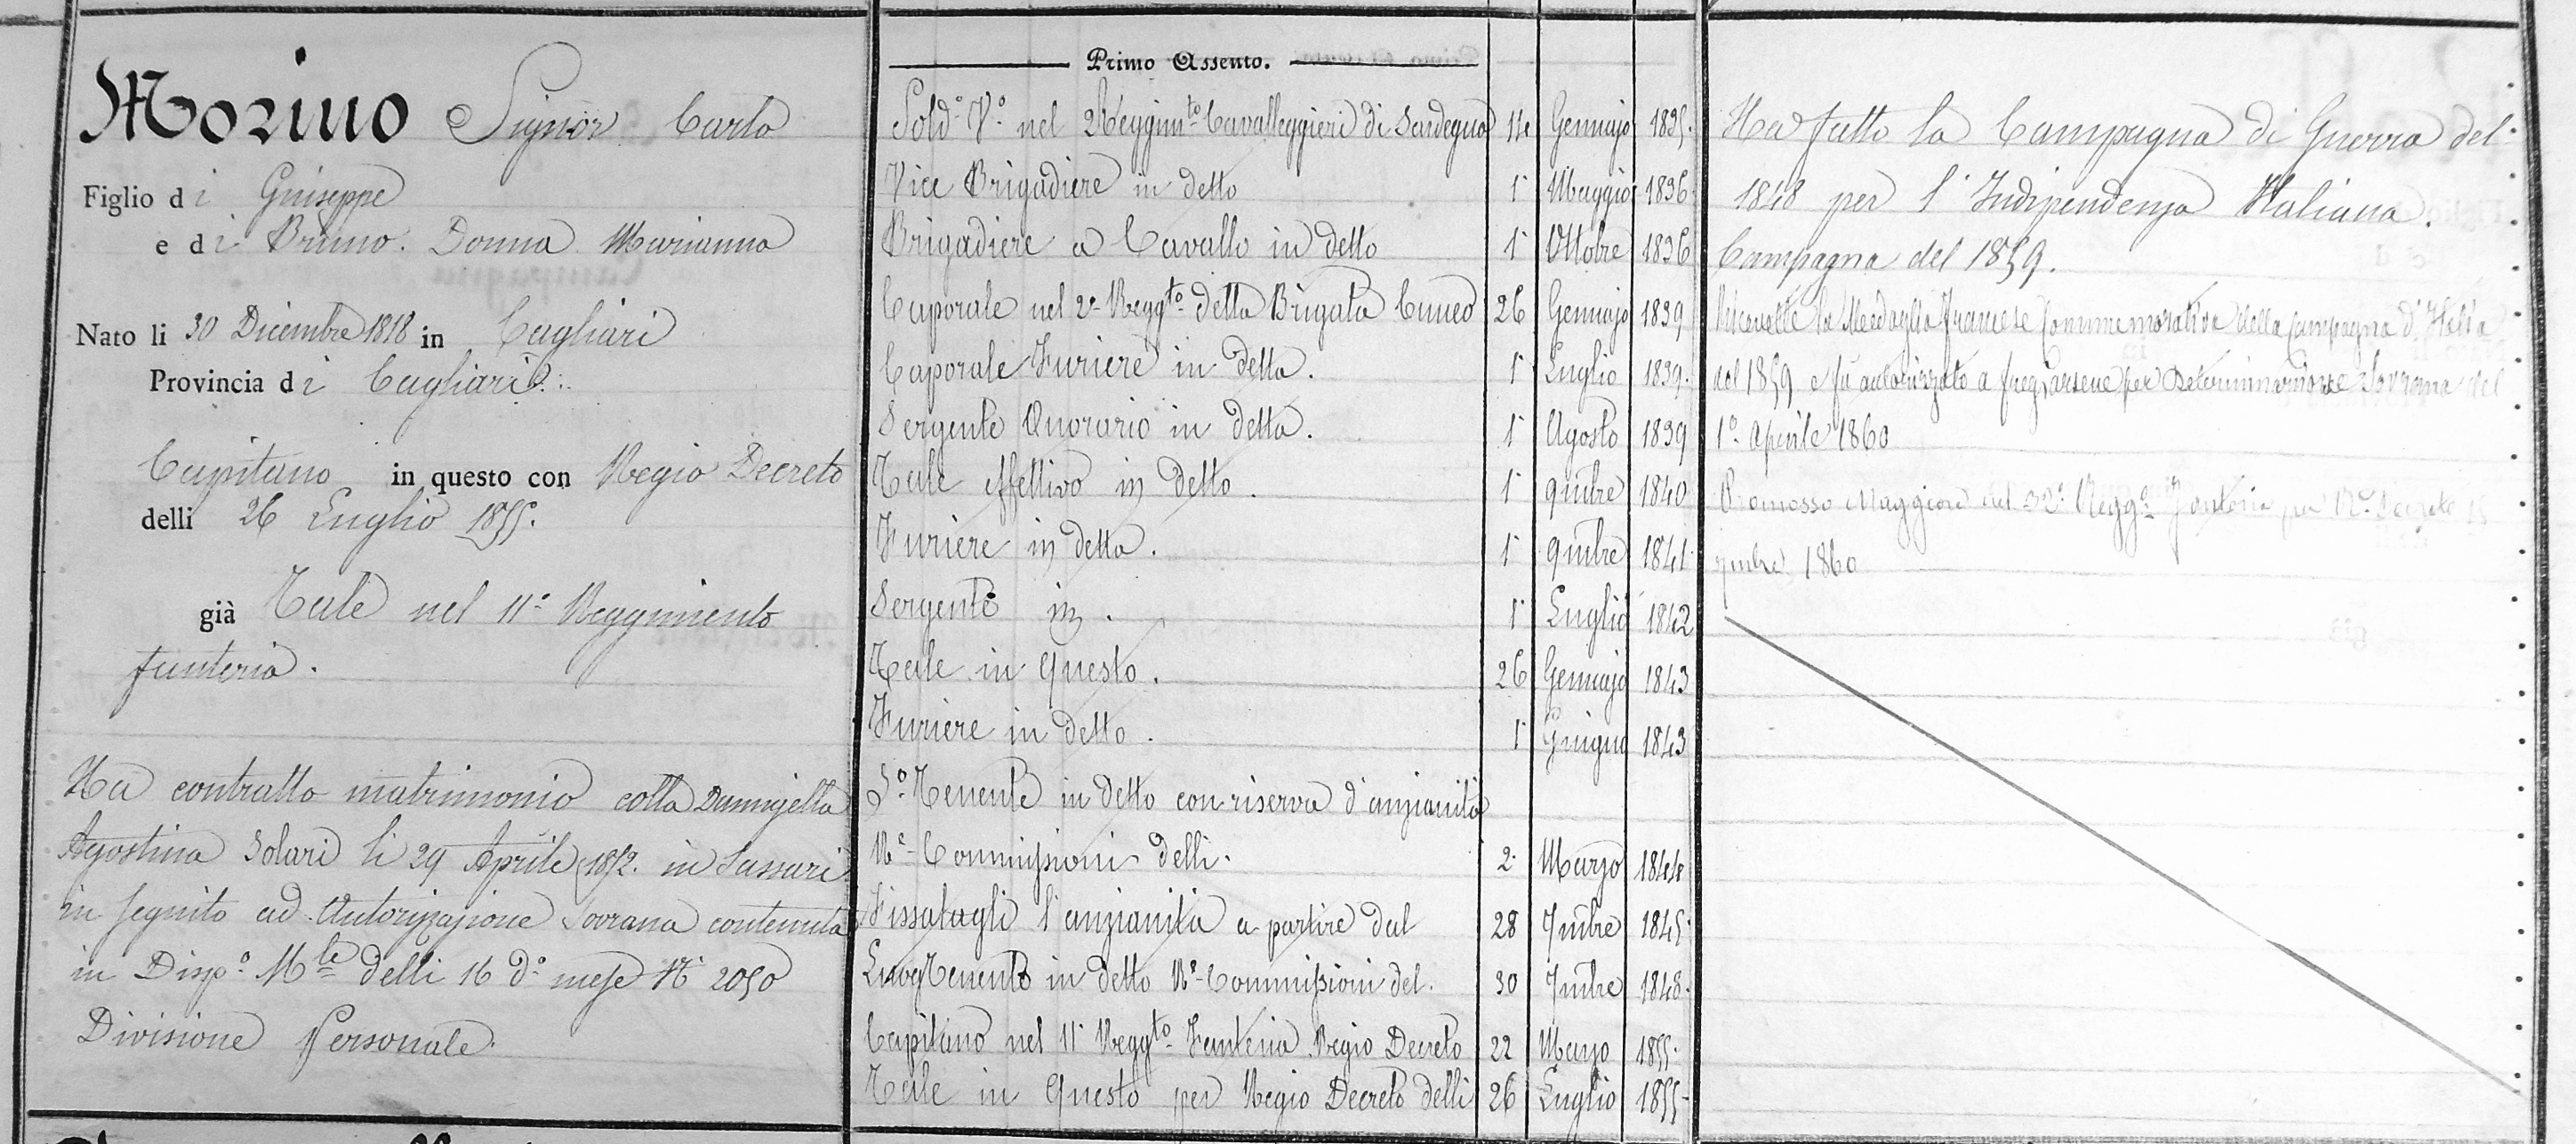 Morino Signor Carlo
Figlio di Giuseppe
e di Bruno. Donna Marianna
Nato li 30 Dicembre 1818 in Cagliari
Provincia di Cagliari.
Capitano in questo con Regio Decreto
delli 26 Luglio 1855.
già Tale nel 11.º Reggimento
fanteria.
Ha contratto matrimonio colla Damigella
Agostina Solari li 29 Aprile 1852. in Sassari
in seguito ad Autorizzazione Sovrana contenuta
in Disp.º M.le delli 16 d.º mese Nº 2050
Divisione Personale.
Primo Assento.
Sold.º V.º nel 2 Reggim.to Cavalleggieri di Sardegna 14 Gennajo 1835.
Vice Brigadiere in detto 1º Maggio 1836
Brigadiere a Cavallo in detto 1º Ottobre 1836
Caporale nel 2º Regg.to della Brigata Cuneo 26 Gennajo 1839
Caporale Furiere in detta. 1º Luglio 1839.
Sergente Onorario in detta. 1º Agosto 1839
Tale effettivo in detto. 1º 9mbre 1840
Furiere in detta. 1º 9mbre 1841
Sergente in . 1º Luglio 1842
Tale in Questo. 26 Gennajo 1843
Furiere in detto. 1º Giugno 1843
S.º Tenente in detto con riserva d'anzianità
R.e Commissioni delli. 2. Marzo 1844
Fissatagli l'anzianità a partire dal 28 7mbre 1845.
LuogTenente in detto R.e Commissioni del. 30 7mbre 1848.
Capitano nel 11º Regg.to Fanteria Regio Decreto 22 Marzo 1855.
Tale in Questo per Regio Decreto delli 26 Luglio 1855
Ha fatto la Campagna di Guerra del
1848 per l'Indipendenza Italiana.
Campagna del 1859.
Ricevette la Medaglia francese Commemorativa della Campagna d'Italia
del 1859 e fu autorizzato a fregiarsene per Determinazione Sovrana del
1º Aprile 1860
Promosso Maggiore nel 32º Regg.º Fanteria per R.º Decreto 15
7mbre 1860